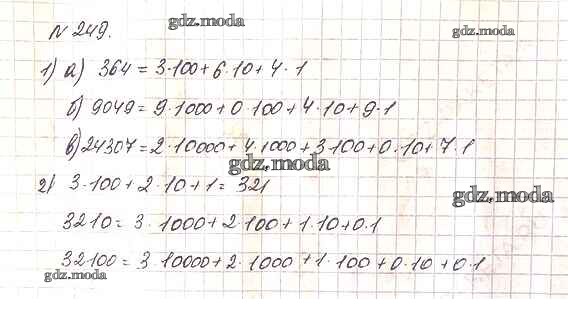 gdz.moda
gdz.moda
№ 249.
1) а) 364 = 3·100 + 6·10 + 4·1
б) 9049 = 9·1000 + 0·100 + 4·10 + 9·1
в) 24307 = 2·10000 + 4·1000 + 3·100 + 0·10 + 7·1
gdz.moda
2) 3·100 + 2·10 + 1 = 321
gdz.moda
3210 = 3·1000 + 2·100 + 1·10 + 0·1
32100 = 3·10000 + 2·1000 + 1·100 + 0·10 + 0·1
gdz.moda